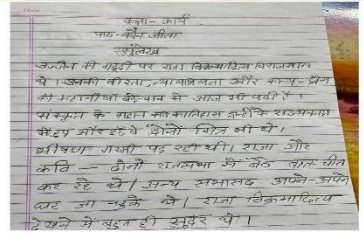 कक्षा-कार्य
पाठ-कौन जीता
उज्जैन की गद्दी पर राजा विक्रमादित्य विराजमान
थे। उनकी वीरता, न्यायप्रियता और काव्य-प्रेम
की कहानियाँ आज भी
संस्कृत के महान कवि कालिदास इन्हीं के राजदरबार
में और दोनों मित्र भी थे।
भीषण गरमी पड़ रही थी। राजा और
कवि - दोनों राजसभा में बैठे बात-चीत
कर रहे थे। अन्य सभासद अपने-अपने
घर जा चुके थे। राजा विक्रमादित्य
देखने में बहुत ही सुंदर थे।